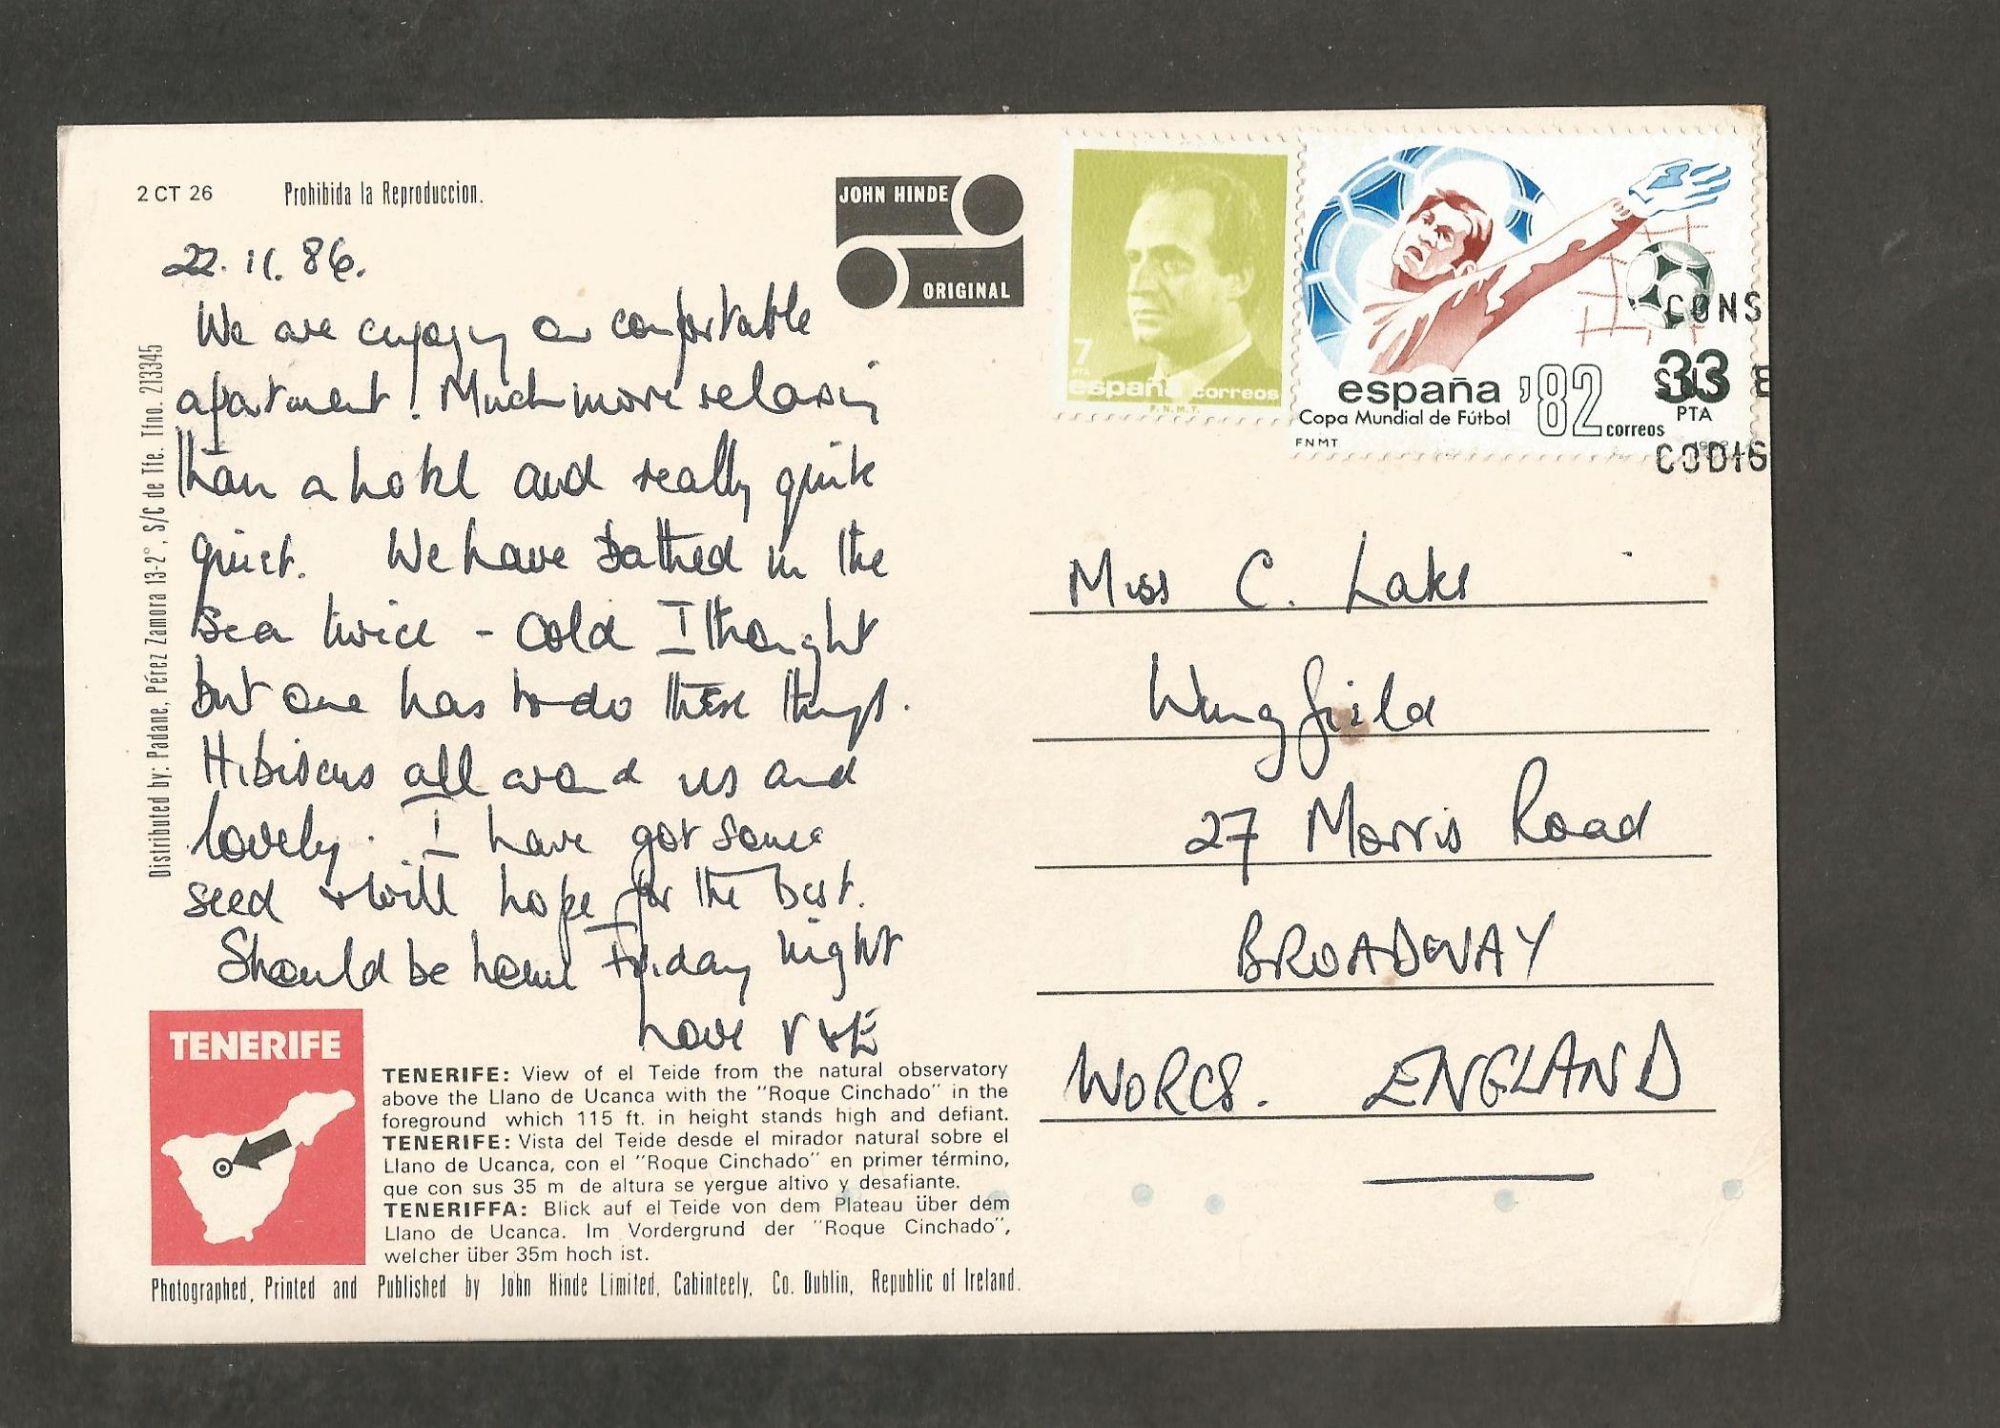 2 CT 26 Prohibida la Reproduccion.
JOHN HINDE
ORIGINAL
22. 11. 86.
We are enjoying our comfortable
apartment! Much more relaxing
than a hotel and really quite
quiet. We have bathed in the
sea twice - cold I thought
but one has to do these things.
Hibiscus all around us and
lovely. I have got some
seed & will hope for the best.
Should be home Friday night
Love V & E
Distributed by: Padane, Pérez Zamora 13-2°, S/C de Tfe. Tfno. 213345
TENERIFE
TENERIFE: View of el Teide from the natural observatory
above the Llano de Ucanca with the "Roque Cinchado" in the
foreground which 115 ft. in height stands high and defiant.
TENERIFE: Vista del Teide desde el mirador natural sobre el
Llano de Ucanca, con el "Roque Cinchado" en primer término,
que con sus 35 m de altura se yergue altivo y desafiante.
TENERIFFA: Blick auf el Teide von dem Plateau über dem
Llano de Ucanca. Im Vordergrund der "Roque Cinchado",
welcher über 35m hoch ist.
Photographed, Printed and Published by John Hinde Limited, Cabinteely, Co. Dublin, Republic of Ireland.
7
PTA
españa correos
F.N.M.T.
españa '82
33
PTA
Copa Mundial de Fútbol
correos
FNMT
CONS
CODIG
Miss C. Lake
Wingfield
27 Morris Road
BROADWAY
WORCS. ENGLAND